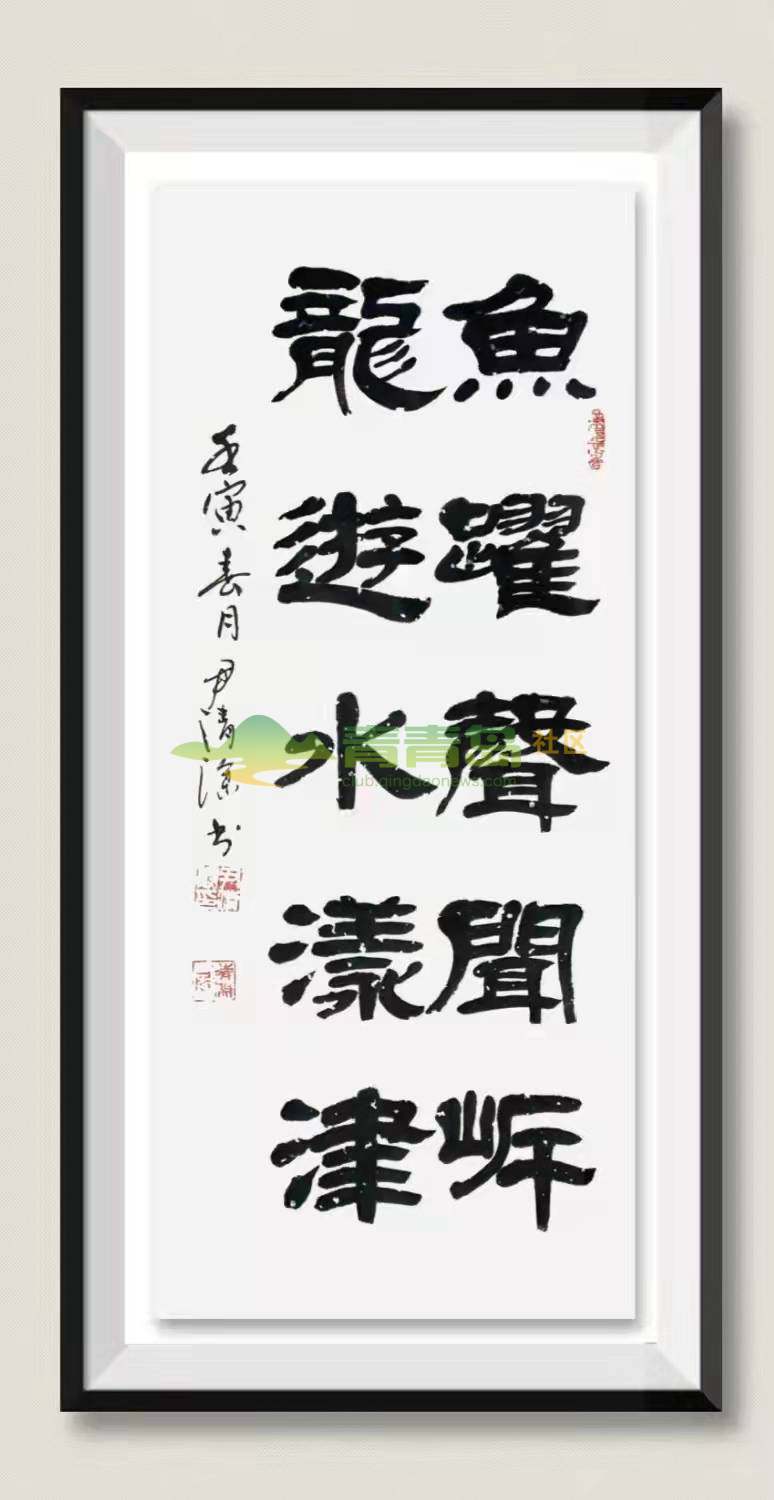 魚躍聲聞岸
龍遊水漾津
壬寅春月尹清书
青青岛社区
club.qingdaonews.com